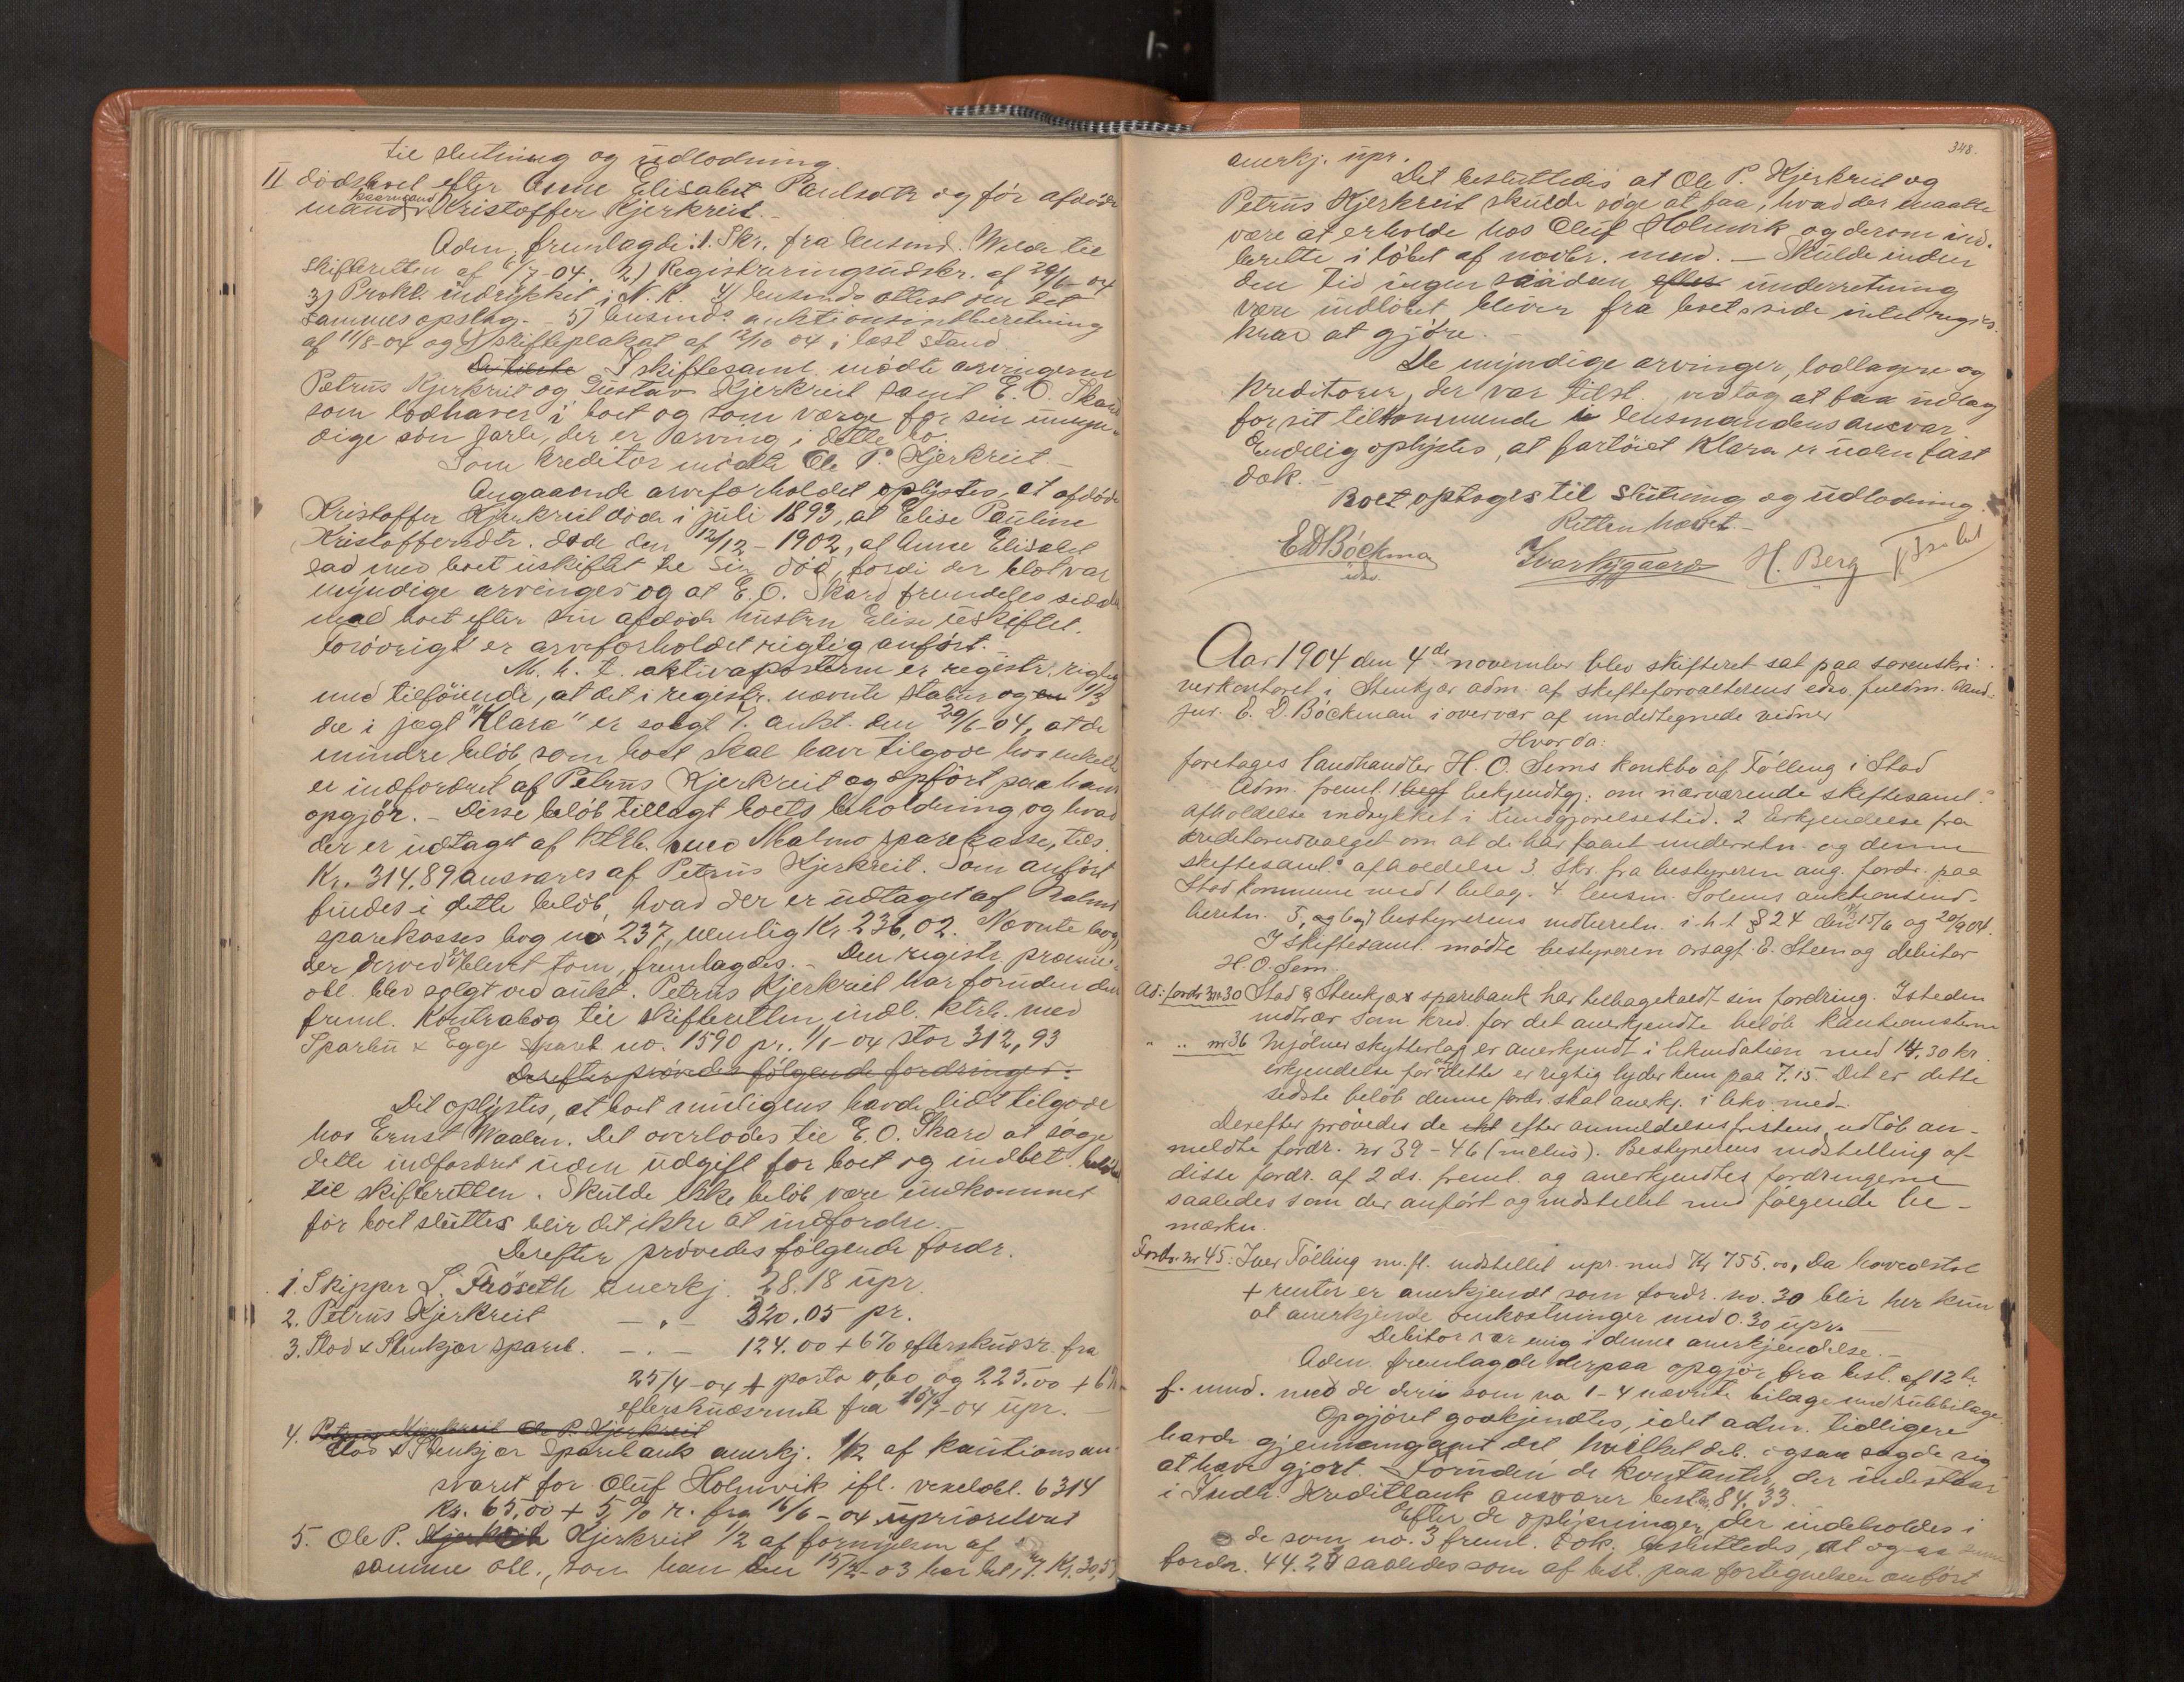 til slutning og udlodning
II dødsboet efter Anne Elisabet Paulsdtr og før afdøde
mand kaarmand Kristoffer Kjerkreit.-
Adm. fremlagde: 1. Skr. fra lensmd. Welde til
skifteretten af 6/7-04. 2) Registreringsudskr. af 29/6-04
3) Prokl. indrykket i N. K. 4) lensmds attest om det
sammes opslag. - 5) lensmds auktionsindberetning
af 11/8-04 og 6) skifteplakat af 12/10 04 i læst stand
I skiftesaml. mødte arvingerne
Petrus Kjerkreit og Gustav Kjerkreit samt E. O. Skard
som lodhaver i boet og som værge for sin umyn-
dige søn Jarle, der er arving i dette bo.
Som kreditor mødte Ole P. Kjerkreit.-
Angaaende arveforholdet oplystes, at afdøde
Kristoffer Kjerkreit døde i juli 1893, at Elise Pauline
Kristoffersdtr. døde den 12/12-1902, at Anne Elisabet
sad med boet uskiftet til sin død, fordi der blot var
myndige arvinger og at E. O. Skard fremdeles sidder
med boet efter sin afdøde hustru Elise uskiftet.
Forøvrigt er arveforholdet rigtig anført.-
M. h. t. aktivaposterne er registr. rigtig
med tilføiende, at det i registr. nævnte stabur og 1/3
del i jægt "Klara" er solgt v. aukt. den 29/6-04, at de
mindre beløb, som boet skal have tilgode hos enkelte
er indfordret af Petrus Kjerkreit og opført paa hans
opgjør. - Disse beløb, tillagt boets beholdning og hvad
der er udtaget af ktrb. med Malmo sparekasse, tils.
Kr. 314,89 ansvares af Petrus Kjerkreit. Som anført
findes i dette beløb, hvad der er udtaget af Malmo
sparekasses bog no 237, nemlig Kr 236,02. Nævnte bog,
der derved er blevet tom, fremlagdes. - Den registr. præmie
obl. blev solgt ved aukt. Petrus Kjerkreit har foruden den
freml. Kontrabog til skifteretten indl. ktrb. med
Sparbu & Egge spareb no. 1590 pr. 1/1-04 stor 312,93
Derefter prøvedes følgende fordringer:
Det oplystes, at boet muligens havde lidt tilgode
hos Ernst Waalen. Det overlodes til E. O. Skard at søge
dette indfordret uden udgift for boet og indbet. beløbet
til skifteretten. Skulde ikke beløb være indkommet
før boet sluttes blir det ikke at indfordre.-
Derefter prøvedes følgende fordr.
1. Skipper L. Frøseth anerkj. 28.18 upr.
2. Petrus Kjerkreit - „ - 320.05 pr.
3. Stod & Stenkjær spareb. - „ - 124.00 + 6% efterskudsr. fra
25/4-04 + porto 0,60 og 225.00 + 6%
efterskudsrente fra -04 upr.
4. Petrus Kjerkreit Ole P. Kjerkreit
Stod & Stenkjær Sparebank anerkj. 1/2 af kautionsan-
svaret for Oluf Holmvik ifl. vexelobl. 6314
Kr. 65,00 + 5% r. fra 16/6-04 uprioriteret
5. Ole P. Kjerkreit Kjerkreit 1/2 af fornyelsen af
samme obl., som han den 15/2-03 har bet.
348.
anerkj. upr.
Det besluttedes at Ole P. Kjerkreit og
Petrus Kjerkreit skulde søge at faa, hvad der maatte
være at erholde hos Oluf Holmvik og derom ind-
berette i løbet af novbr. mnd. - Skulde inden
den tid ingen saadan efter underretning
være indløbet bliver fra boets side intet regres-
krav at gjøre.-
De myndige arvinger, lodtagere og
kreditorer, der var tilst. vedtog at faa udlæg
for sit tilkommende i lensmandens ansvar.
Endelig oplystes, at fartøiet Klara er uden fast
dæk.-
Boet optoges til slutning og udlodning.
Retten hævet.-
E D Böckman
edsv.
Ivar Nygaard H. Berg
Aar 1904 den 4de november blev skifteret sat paa sorenskri-
verkontoret i Stenkjær adm. af skifteforvalterens edsv. fuldm. cand.
jur. E. D. Böckman i overvær af undertegnede vidner
Hvorda:
foretages landhandler H. O. Sems konkbo af Tølling i Stod
Adm. freml. 1 bekjendtgj. om nærværende skiftesaml.s
afholdelse indrykket i Kundgjørelsestid. 2 Erkjendelse fra
kreditorudvalget om at de har faaet underretn. og denne
skiftesaml.s afholdelse 3. skr. fra bestyreren ang. fordr. paa
Stod kommune med 1 bilag. 4. lensm. Solems auktionsind-
beretn. 5, og 6 og 7 bestyrerens indberetn. i h. t § 24 den 15/6 og 20/9 04.
I skiftesaml. mødte bestyreren orsagf. E. Steen og debitor
H. O. Sem.
Ad: fordr nr 30 Stod & Stenkjær sparebank har tilbagekaldt sin fordring. Isteden
indtræ som kred. for det anerkjendte beløb kautionisterne
" .. nr 36 Mjølner skytterlag er anerkjendt i likvidation med 14.30 kr.
erkjendelse for at dette er rigtig lyder kun paa 7.15. Det er dette
sidste beløb denne fordr. skal anerkj. i likv. med-
Derefter prøvedes de efter anmeldelsesfristens udløb an-
meldte fordr. nr 39-46 (inclus). Bestyrerens indstilling af
disse fordr. af 2 ds. freml. og anerkjendtes fordringerne
saaledes som der anført og indstillet med følgende be-
mærkn.
Fordr. nr 45: Iver Tølling m. fl. indstillet upr. med Kr 755.00, Da hovedstol
+ renter er anerkjendt som fordr. no. 30 blir her kun
at anerkjende omkostninger med 0.30 upr.
Debitor var enig i denne anerkjendelse.-
Adm. fremlagde derpaa opgjør fra best. af 12te
f. mnd. med de deri som no 1-4 nævnte bilage med subbilage.
Opgjøret godkjendtes, idet adm. tidligere
havde gjennemgaaet det, hvilket deb. ogsaa sagde sig
at have gjort. Foruden de kontanter der indestaar
i Indh. Kreditbank ansvarer best. 84,33.
Efter de oplysninger der indeholdes i
de som no. 3 freml. dok. besluttedes, at ogsaa
fordr. 44.28 saaledes som af best. paa fortegnelsen anført